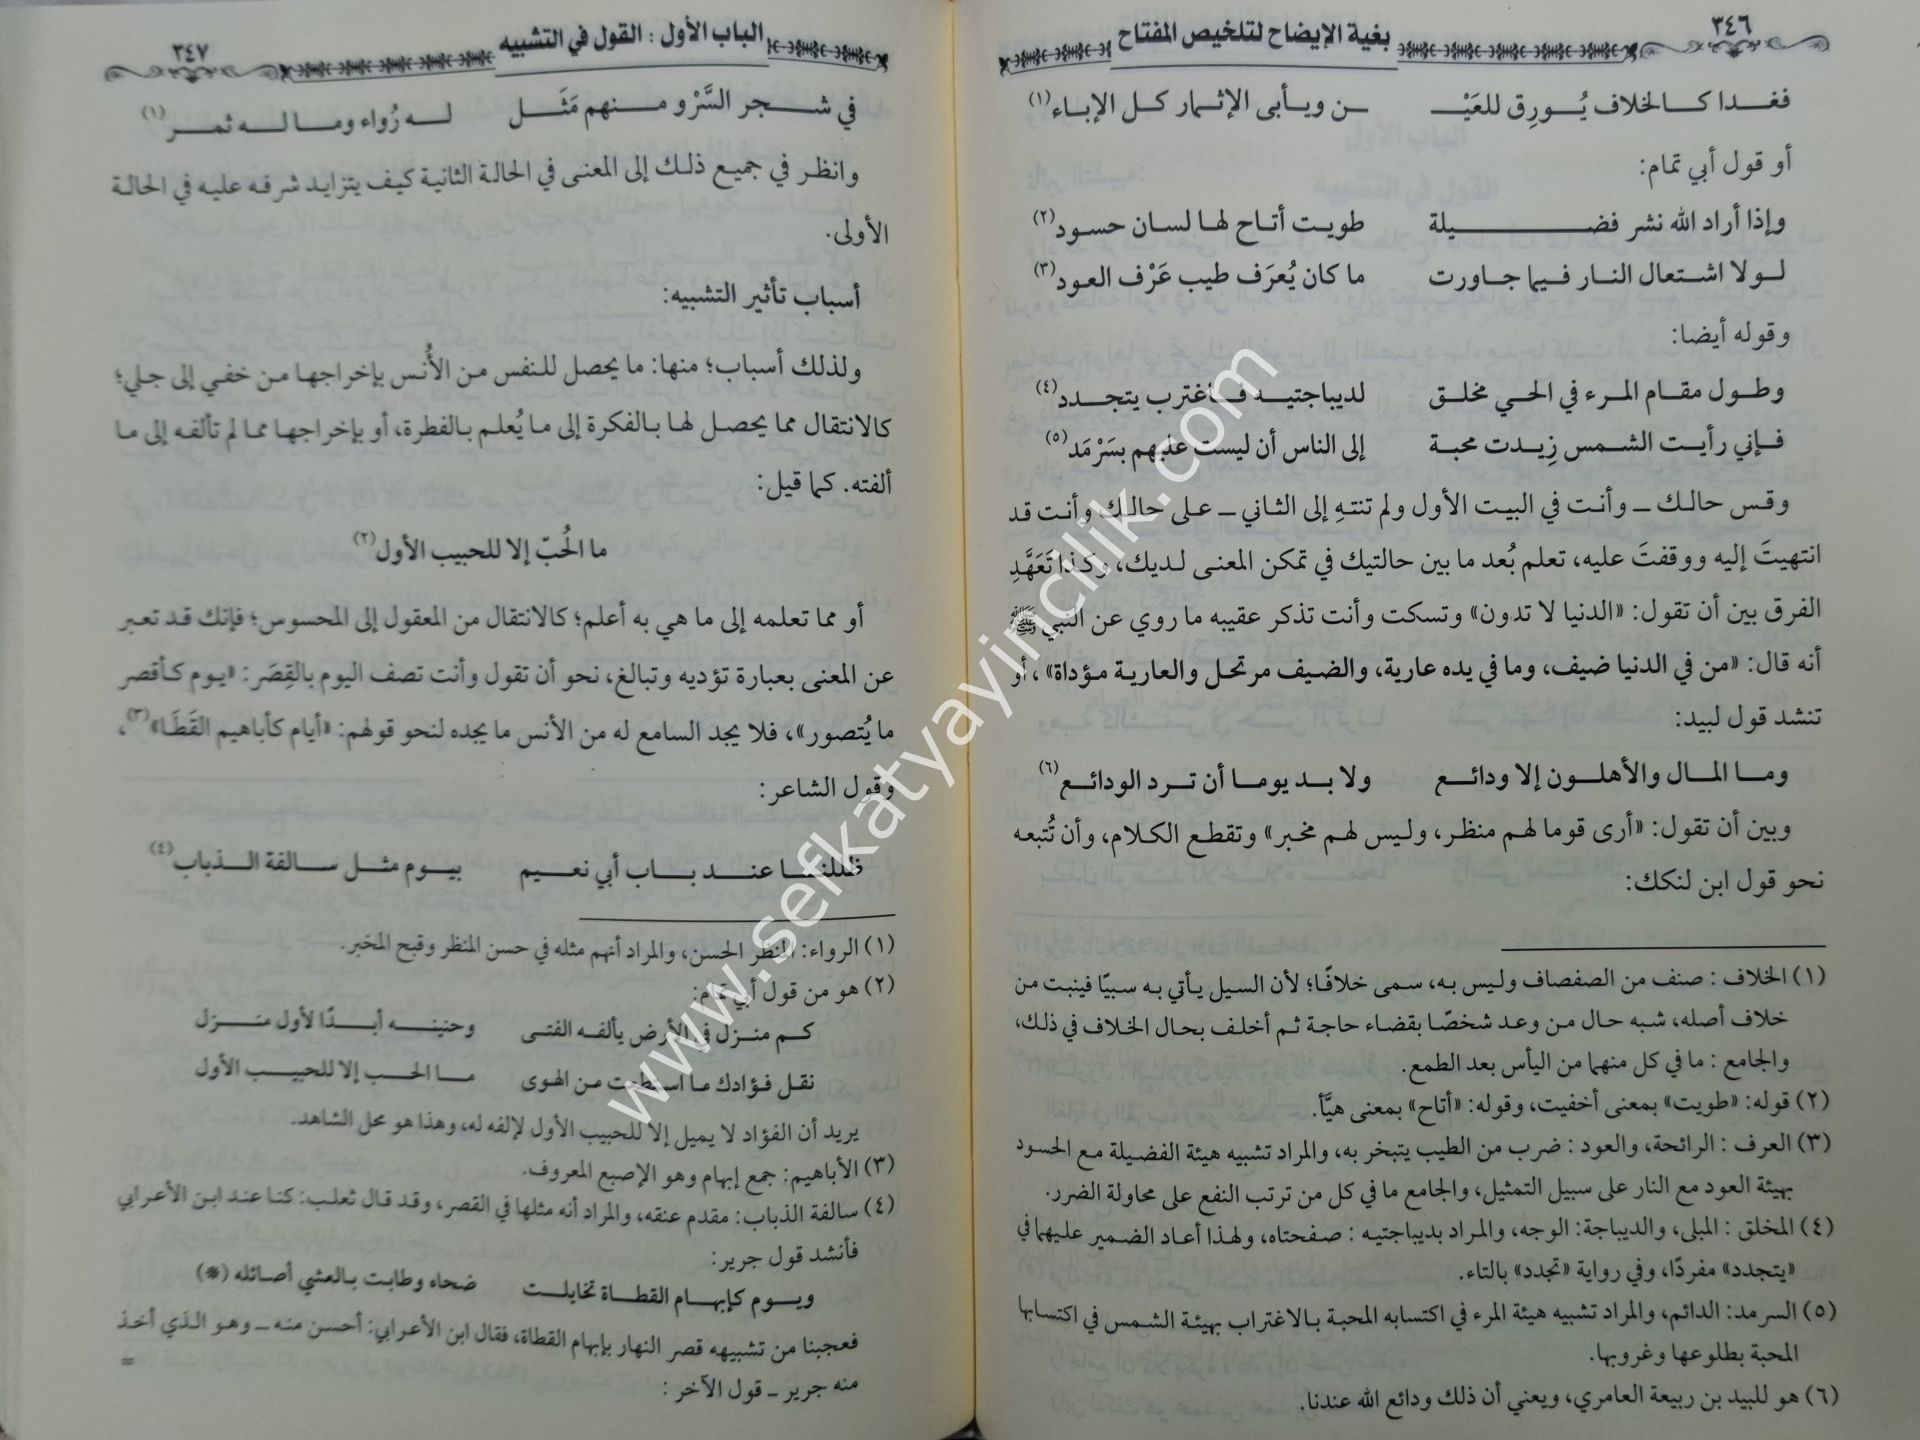 ٣٤٦
بغية الإيضاح لتلخيص المفتاح
فغدا كالخلاف يُورِق للعَيْـ ـن ويأبى الإثمار كل الإباء (١)
أو قول أبي تمام:
وإذا أراد الله نشر فضيلة طويت أتاح لها لسان حسود (٢)
لولا اشتعال النار فيما جاورت ما كان يُعرَف طيب عَرْف العود (٣)
وقوله أيضا:
وطول مقام المرء في الحي مخلق لديباجتيه فاغترب يتجدد (٤)
فإني رأيت الشمس زِيدت محبة إلى الناس أن ليست عليهم بسَرْمَد (٥)
وقس حالك ــ وأنت في البيت الأول ولم تنتهِ إلى الثاني ــ على حالك وأنت قد
انتهيتَ إليه ووقفتَ عليه، تعلم بُعد ما بين حالتيك في تمكن المعنى لديك، وكذا تَعَهَّدِ
الفرق بين أن تقول: «الدنيا لا تدون» وتسكت وأنت تذكر عقيبه ما روي عن النبي ﷺ
أنه قال: «من في الدنيا ضيف، وما في يده عارية، والضيف مرتحل والعارية مؤداة»، أو
تنشد قول لبيد:
وما المال والأهلون إلا ودائع ولا بد يوما أن ترد الودائع (٦)
وبين أن تقول: «أرى قوما لهم منظر، وليس لهم مخبر» وتقطع الكلام، وأن تُتبعه
نحو قول ابن لنكك:
(١) الخلاف : صنف من الصفصاف وليس به، سمى خلافًا؛ لأن السيل يأتي به سبيًا فينبت من
خلاف أصله، شبه حال من وعد شخصًا بقضاء حاجة ثم أخلف بحال الخلاف في ذلك،
والجامع : ما في كل منهما من اليأس بعد الطمع.
(٢) قوله: «طويت» بمعنى أخفيت، وقوله: «أتاح» بمعنى هيَّأ.
(٣) العرف : الرائحة، والعود : ضرب من الطيب يتبخر به، والمراد تشبيه هيئة الفضيلة مع الحسود
بهيئة العود مع النار على سبيل التمثيل، والجامع ما في كل من ترتب النفع على محاولة الضرر.
(٤) المخلق : المبلى، والديباجة: الوجه، والمراد بديباجتيه : صفحتاه، ولهذا أعاد الضمير عليهما في
«يتجدد» مفردًا، وفي رواية «تجدد» بالتاء.
(٥) السرمد: الدائم، والمراد تشبيه هيئة المرء في اكتسابه المحبة بالاغتراب بهيئة الشمس في اكتسابها
المحبة بطلوعها وغروبها.
(٦) هو للبيد بن ربيعة العامري، ويعني أن ذلك ودائع الله عندنا.
الباب الأول : القول في التشبيه
٣٤٧
في شجر السَّرْو منهم مَثَل له رُواء وما له ثمر (١)
وانظر في جميع ذلك إلى المعنى في الحالة الثانية كيف يتزايد شرفه عليه في الحالة
الأولى.
أسباب تأثير التشبيه:
ولذلك أسباب؛ منها: ما يحصل للنفس من الأُنس بإخراجها من خفي إلى جلي؛
كالانتقال مما يحصل لها بالفكرة إلى ما يُعلم بالفطرة، أو بإخراجها مما لم تألفه إلى ما
ألفته. كما قيل:
ما الحُبّ إلا للحبيب الأول (٢)
أو مما تعلمه إلى ما هي به أعلم؛ كالانتقال من المعقول إلى المحسوس؛ فإنك قد تعبر
عن المعنى بعبارة تؤديه وتبالغ، نحو أن تقول وأنت تصف اليوم بالقِصَر: «يوم كأقصر
ما يُتصور»، فلا يجد السامع له من الأنس ما يجده لنحو قولهم: «أيام كأباهيم القَطَا» (٣)،
وقول الشاعر:
ظللنا عند باب أبي نعيم بيوم مثل سالفة الذباب (٤)
(١) الرواء: المنظر الحسن، والمراد أنهم مثله في حسن المنظر وقبح المخبر.
(٢) هو من قول أبي تمام:
كم منزل في الأرض يألفه الفتى وحنينه أبدًا لأول منزل
نقل فؤادك ما استطعت من الهوى ما الحب إلا للحبيب الأول
يريد أن الفؤاد لا يميل إلا للحبيب الأول لإلفه له، وهذا هو محل الشاهد.
(٣) الأباهيم: جمع إبهام وهو الإصبع المعروف.
(٤) سالفة الذباب: مقدم عنقه، والمراد أنه مثلها في القصر، وقد قال ثعلب: كنا عند ابن الأعرابي
فأنشد قول جرير:
ويوم كإبهام القطاة تخايلت ضحاه وطابت بالعشي أصائله (*)
فعجبنا من تشبيهه قصر النهار بإبهام القطاة، فقال ابن الأعرابي: أحسن منه ــ وهو الذي أخذ
منه جرير ــ قول الآخر :
=
www.sefkatyayincilik.com